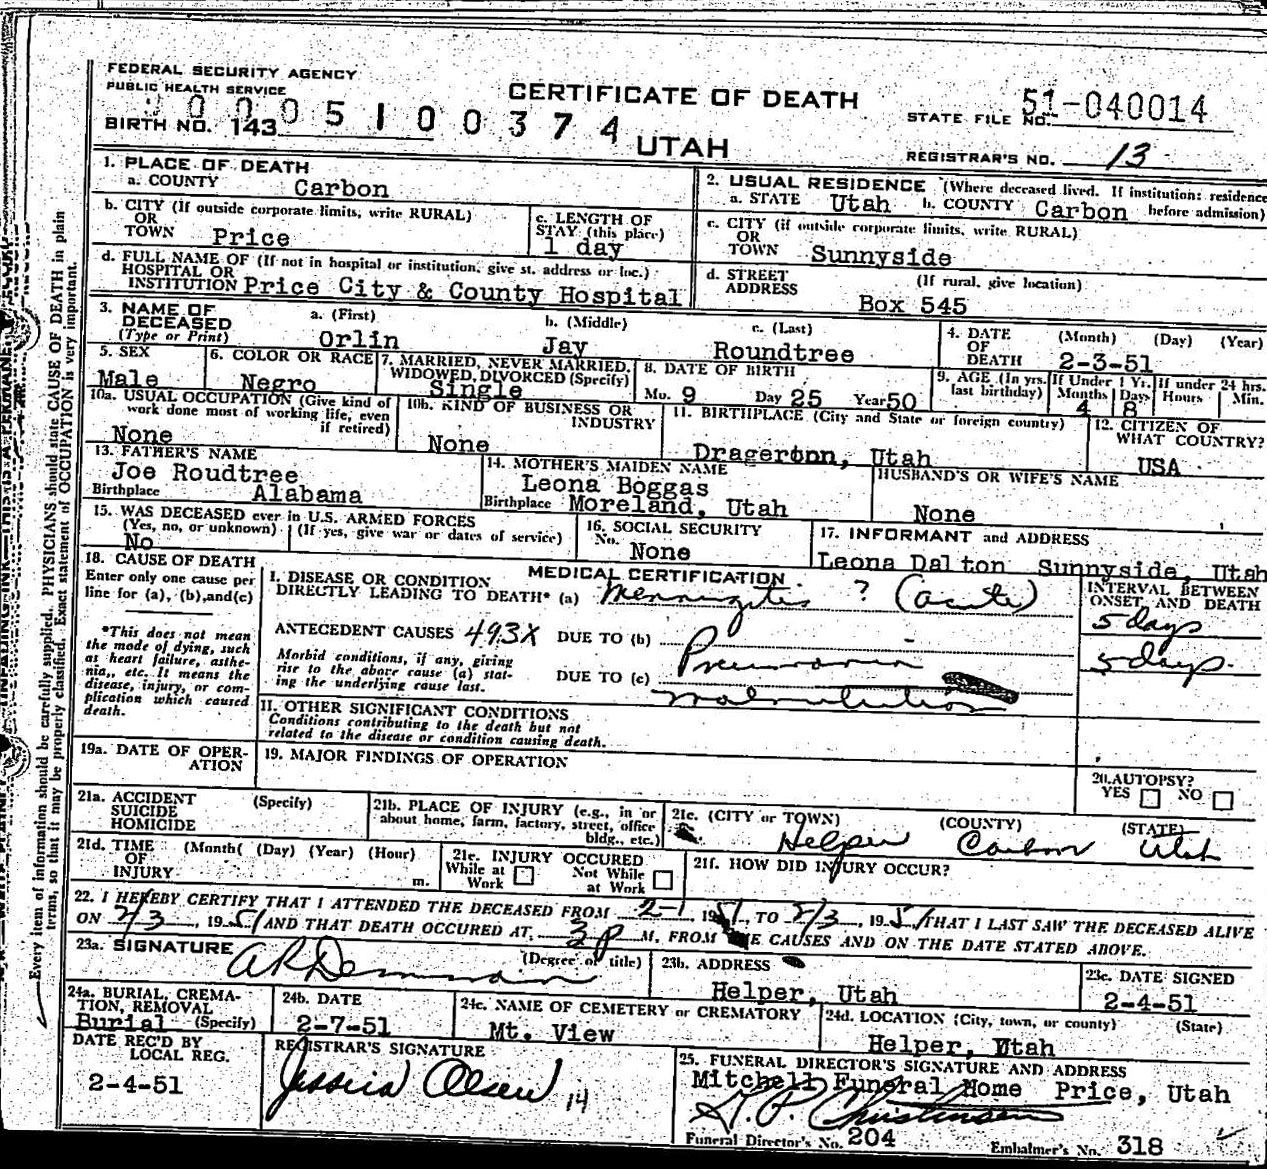 FEDERAL SECURITY AGENCY
PUBLIC HEALTH SERVICE
CERTIFICATE OF DEATH
STATE FILE NO. 51-040014
0005100374
BIRTH NO. 143
UTAH
REGISTRAR'S NO. 13
1. PLACE OF DEATH
a. COUNTY Carbon
2. USUAL RESIDENCE (Where deceased lived. If institution: residence
a. STATE Utah b. COUNTY Carbon before admission)
b. CITY (If outside corporate limits, write RURAL)
OR
TOWN Price
c. LENGTH OF
STAY (this place)
1 day
c. CITY (if outside corporate limits, write RURAL)
OR
TOWN Sunnyside
d. FULL NAME OF (If not in hospital or institution, give st. address or loc.)
HOSPITAL OR
INSTITUTION Price City & County Hospital
d. STREET (If rural, give location)
ADDRESS
Box 545
3. NAME OF DECEASED
(Type or Print)
a. (First) b. (Middle) c. (Last)
Orlin Jay Roundtree
4. DATE OF DEATH (Month) (Day) (Year)
2-3-51
5. SEX
Male
6. COLOR OR RACE
Negro
7. MARRIED, NEVER MARRIED,
WIDOWED, DIVORCED (Specify)
Single
8. DATE OF BIRTH
Mo. 9 Day 25 Year 50
9. AGE (In yrs. last birthday)
If Under 1 Yr. If under 24 hrs.
Months Days Hours Min.
4 8
10a. USUAL OCCUPATION (Give kind of
work done most of working life, even
if retired)
None
10b. KIND OF BUSINESS OR
INDUSTRY
None
11. BIRTHPLACE (City and State or foreign country)
Dragerton, Utah
12. CITIZEN OF
WHAT COUNTRY?
USA
13. FATHER'S NAME
Joe Roudtree
Birthplace Alabama
14. MOTHER'S MAIDEN NAME
Leona Boggas
Birthplace Moreland, Utah
HUSBAND'S OR WIFE'S NAME
None
15. WAS DECEASED ever in U.S. ARMED FORCES
(Yes, no, or unknown) (If yes, give war or dates of service)
No
16. SOCIAL SECURITY
No. None
17. INFORMANT and ADDRESS
Leona Dalton Sunnyside, Utah
18. CAUSE OF DEATH
Enter only one cause per
line for (a), (b), and (c)
*This does not mean
the mode of dying, such
as heart failure, asthe-
nia, etc. It means the
disease, injury, or com-
plication which caused
death.
MEDICAL CERTIFICATION
I. DISEASE OR CONDITION
DIRECTLY LEADING TO DEATH* (a) Meningitis ? (acute)
INTERVAL BETWEEN
ONSET AND DEATH
5 days
ANTECEDENT CAUSES 493X DUE TO (b) Pneumonia
5 days
Morbid conditions, if any, giving
rise to the above cause (a) stat-
ing the underlying cause last.
DUE TO (c) Malnutrition
II. OTHER SIGNIFICANT CONDITIONS
Conditions contributing to the death but not
related to the disease or condition causing death.
19a. DATE OF OPER-
ATION
19. MAJOR FINDINGS OF OPERATION
20. AUTOPSY?
YES NO
21a. ACCIDENT (Specify)
SUICIDE
HOMICIDE
21b. PLACE OF INJURY (e.g., in or
about home, farm, factory, street, office
bldg., etc.)
21c. (CITY or TOWN) (COUNTY) (STATE)
Helper Carbon Utah
21d. TIME (Month( (Day) (Year) (Hour)
OF
INJURY m.
21e. INJURY OCCURED
While at Work Not While at Work
21f. HOW DID INJURY OCCUR?
22. I HEREBY CERTIFY THAT I ATTENDED THE DECEASED FROM 2-1 1951, TO 2/3, 1951 THAT I LAST SAW THE DECEASED ALIVE
ON 2/3, 1951 AND THAT DEATH OCCURED AT 3 P M. FROM THE CAUSES AND ON THE DATE STATED ABOVE.
23a. SIGNATURE (Degree or title)
23b. ADDRESS
Helper, Utah
23c. DATE SIGNED
2-4-51
24a. BURIAL, CREMA-
TION, REMOVAL
Burial (Specify)
24b. DATE
2-7-51
24c. NAME OF CEMETERY or CREMATORY
Mt. View
24d. LOCATION (City, town, or county) (State)
Helper, Utah
DATE REC'D BY
LOCAL REG.
2-4-51
REGISTRAR'S SIGNATURE
Jessica Olsen 14
25. FUNERAL DIRECTOR'S SIGNATURE AND ADDRESS
Mitchell Funeral Home Price, Utah
Christensen
Funeral Director's No. 204 Embalmer's No. 318
Every item of information should be carefully supplied. PHYSICIANS should state CAUSE OF DEATH in plain
terms, so that it may be properly classified. Exact statement of OCCUPATION is very important.